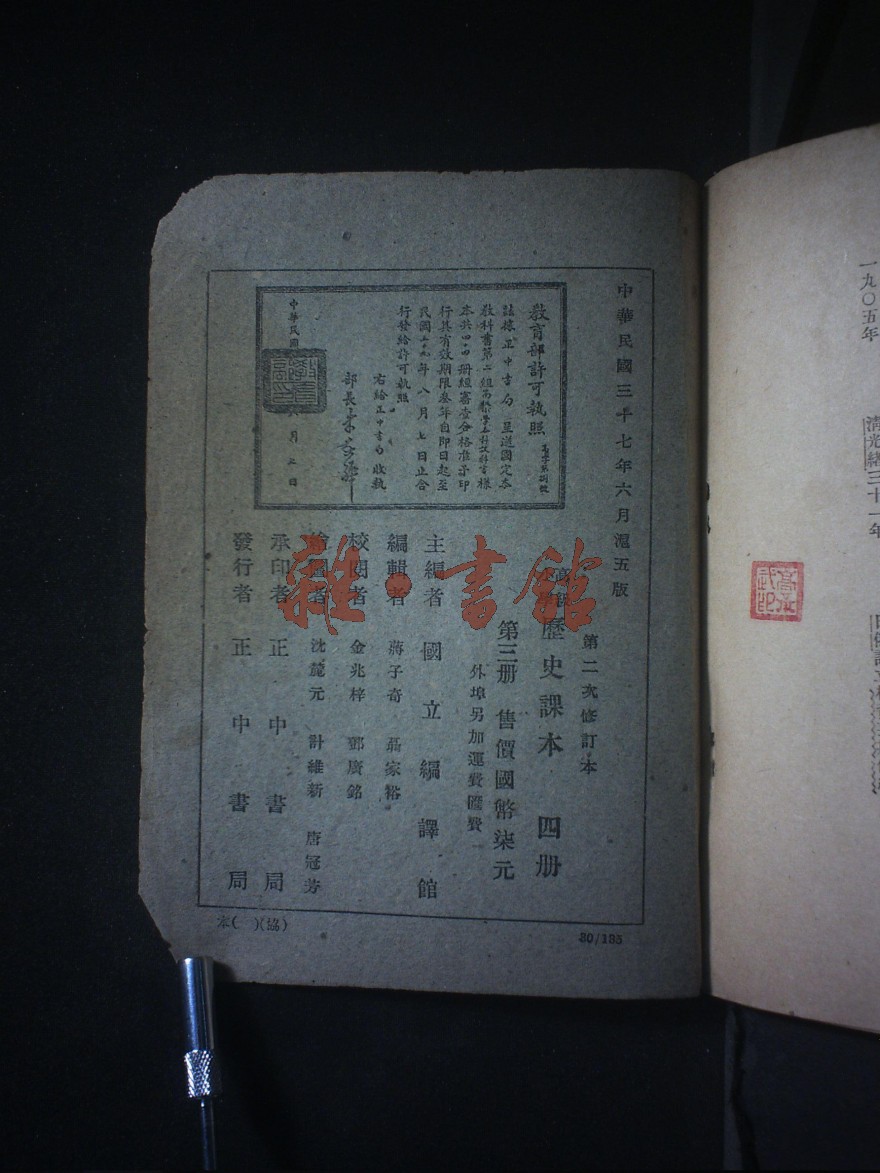 中華民國三十七年六月滬五版
教育部許可執照
茲據正中書局呈送國定本
教科書第二組高級小學
本共四冊經審查合格准予印
行其有效期限叁年自即日起至
民國三十九年八月七日止合
行發給許可執照
右給正中書局收執
部長
中華民國
月 日
第二次修訂本
高級
歷史課本 四册
第三册 售價國幣柒元
外埠另加運費匯費
主編者 國立編譯館
編輯者 蔣子奇 聶家裕
校閱者 金兆梓 鄧廣銘
繪圖者 沈麓元 計維新 唐冠芳
承印者 正中書局
發行者 正中書局
本( )(協)
30/135
雜·書館
一九〇五年
清光緒三十一年